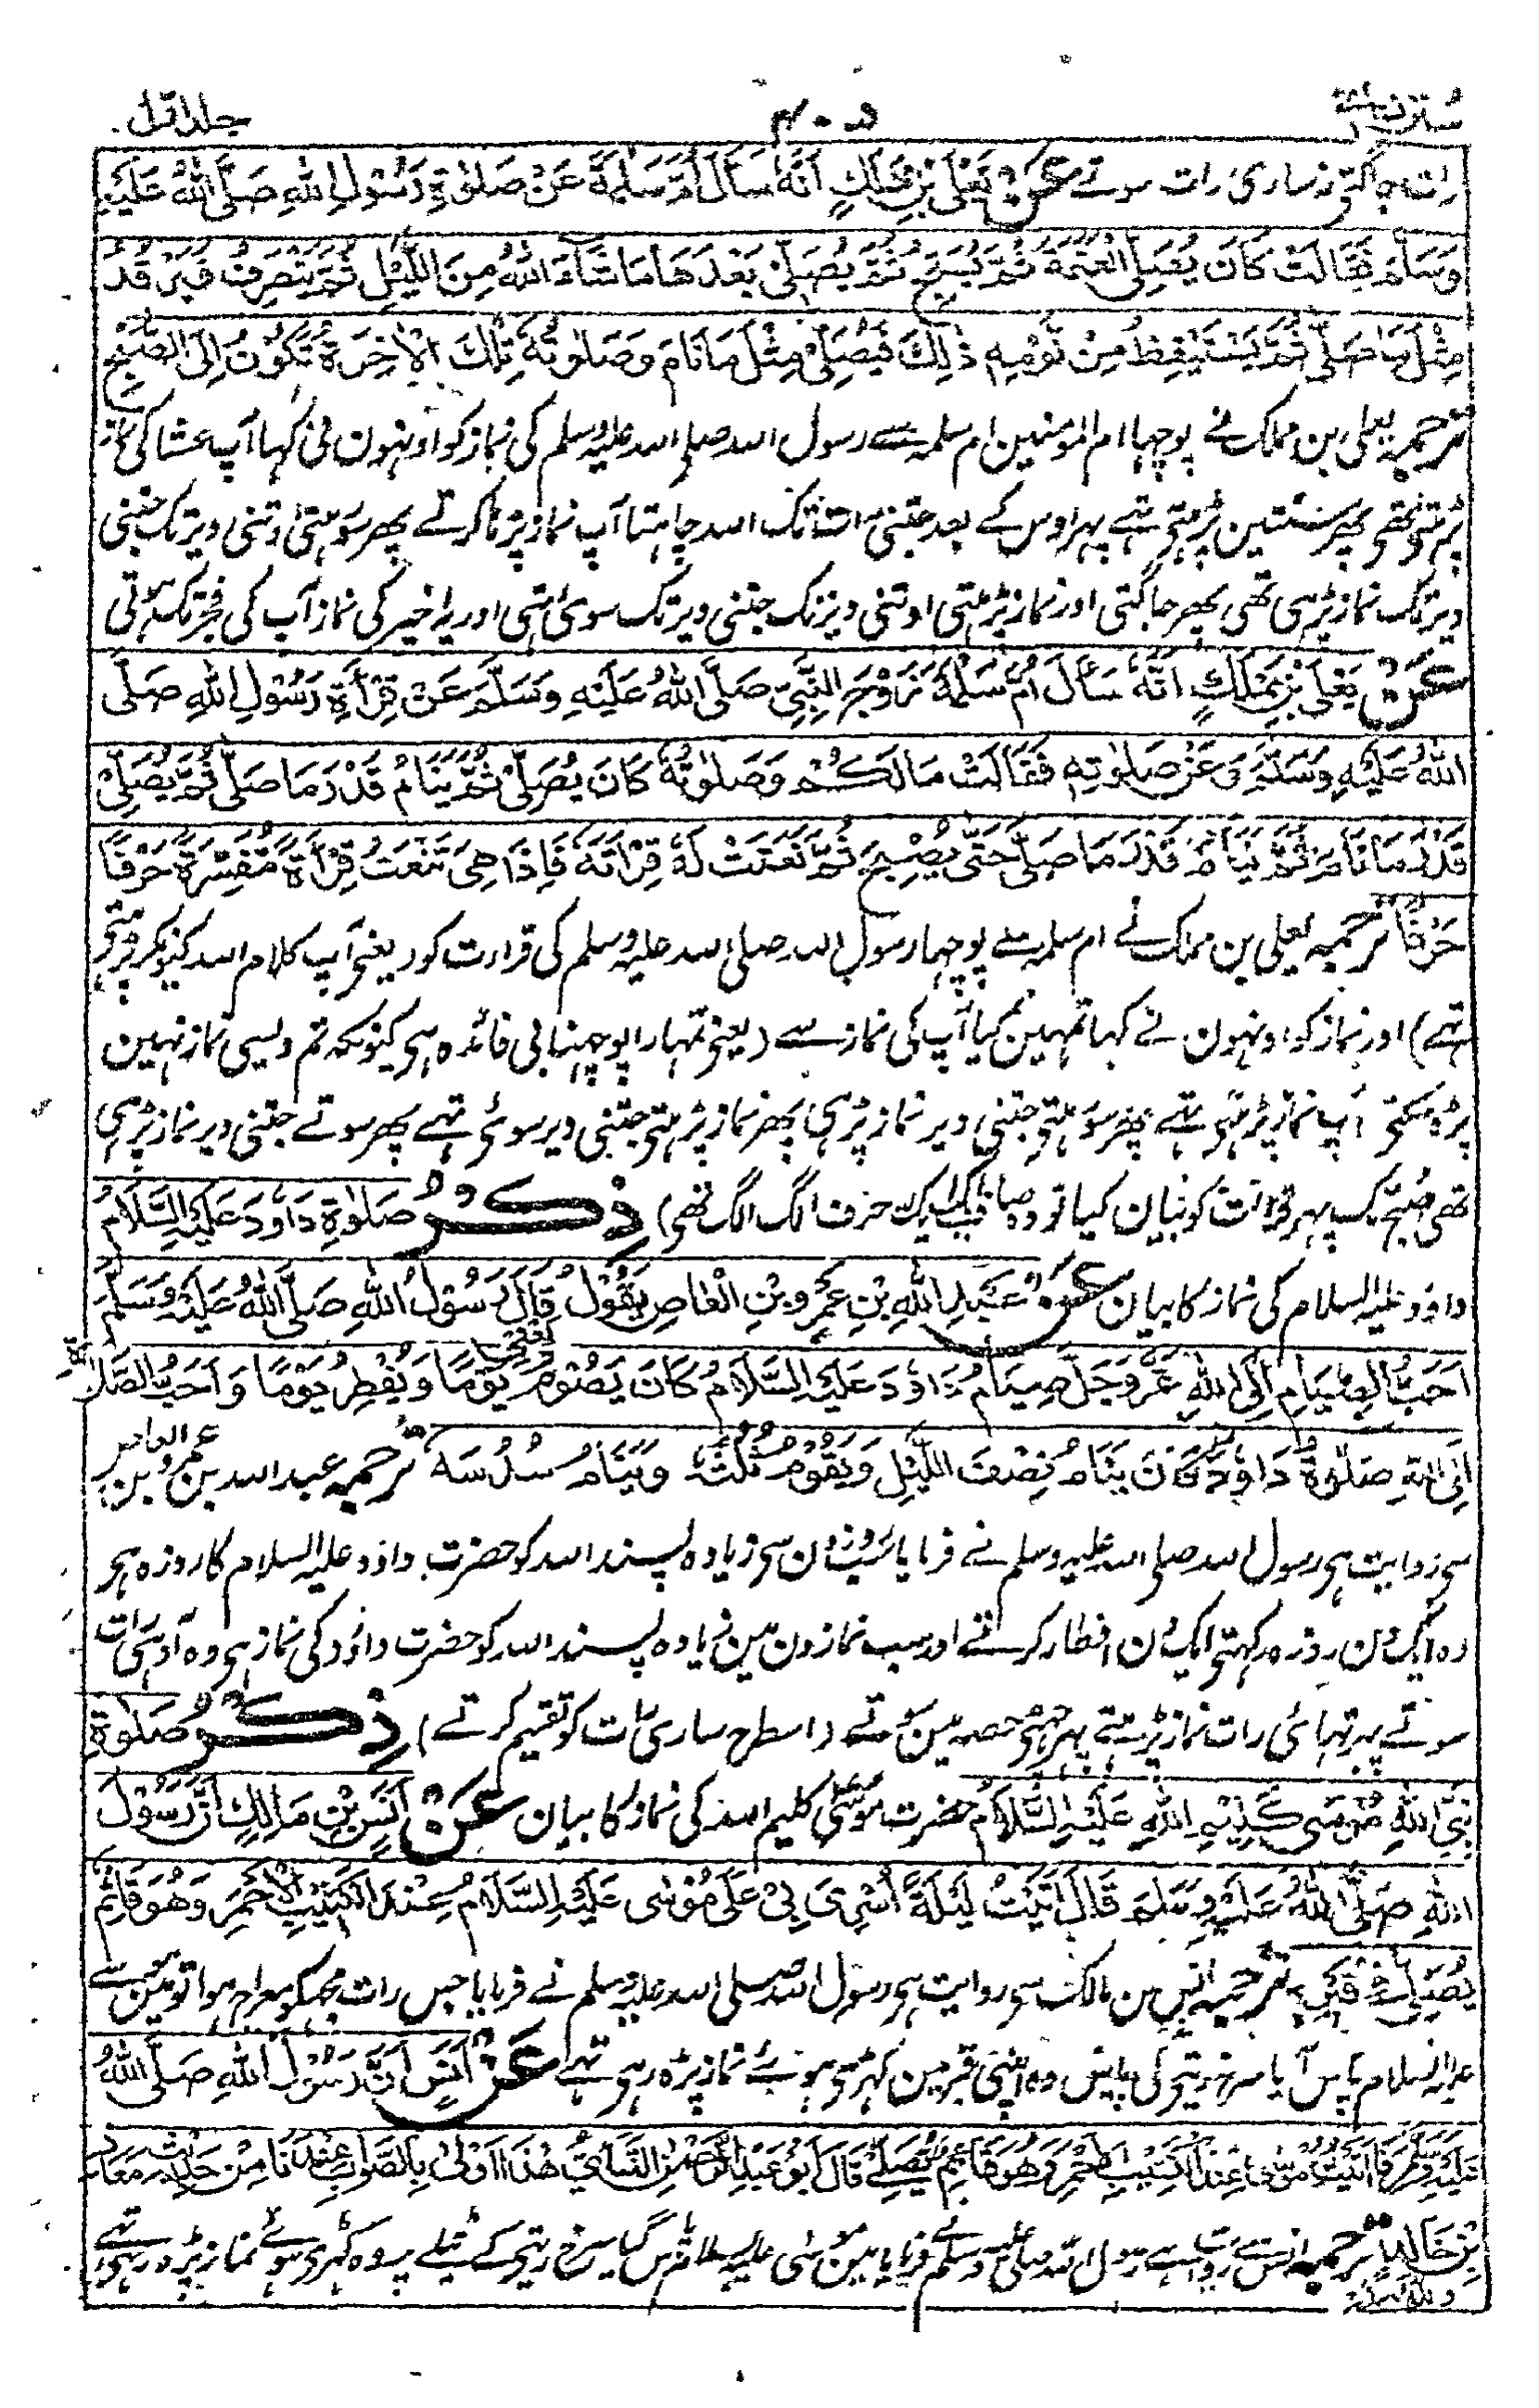 سنن نسائی ۴۰۵ جلد اول
رات جاگتی نہ ساری رات سوتے عَنْ يَعْلَى بْنِ مَمْلَكٍ اَنَّهٗ سَأَلَ اُمَّ سَلَمَةَ عَنْ صَلٰوةِ رَسُوْلِ اللهِ صَلَّى اللهُ عَلَيْهِ
وَسَلَّمَ فَقَالَتْ كَانَ يُصَلِّى الْعَتَمَةَ ثُمَّ يُسَبِّحُ ثُمَّ يُصَلِّىْ بَعْدَهَا مَا شَآءَ اللهُ مِنَ اللَّيْلِ ثُمَّ يَنْصَرِفُ فَيَرْقُدُ
مِثْلَ مَا صَلّٰى ثُمَّ يَسْتَيْقِظُ مِنْ نَوْمِهٖ ذٰلِكَ فَيُصَلِّىْ مِثْلَ مَا نَامَ وَصَلٰوتُهٗ تِلْكَ الْاٰخِرَةُ تَكُوْنُ اِلَى الصُّبْحِ
ترجمہ یعلی بن مملک نے پوچہا ام المومنین ام سلمہ سے رسول اللہ صلی اللہ علیہ وسلم کی نماز کو اونہون نی کہا آپ عشا کی نماز
پڑہتی تھی پھر سنتین پڑہتی تہے پہر اوس کے بعد جتنی رات تک اللہ چاہتا آپ نماز پڑہا کرتے پھر سو رہتی اوتنی دیر تک جتنی
دیر تک نماز پڑہی تھی پھر جاگتی اور نماز پڑہتی اوتنی دیر تک جتنی دیر تک سوی تہی اور یہ اخیر کی نماز آپ کی فجر تک ہوتی
عَنْ يَعْلَى بْنِ مَمْلَكٍ اَنَّهٗ سَأَلَ اُمَّ سَلَمَةَ زَوْجَ النَّبِيِّ صَلَّى اللهُ عَلَيْهِ وَسَلَّمَ عَنْ قِرْأَةِ رَسُوْلِ اللهِ صَلَّى
اللهُ عَلَيْهِ وَسَلَّمَ وَعَنْ صَلٰوتِهٖ فَقَالَتْ مَا لَكُمْ وَصَلٰوتَهٗ كَانَ يُصَلِّىْ ثُمَّ يَنَامُ قَدْرَ مَا صَلّٰى ثُمَّ يُصَلِّىْ
قَدْرَ مَا نَامَ ثُمَّ يَنَامُ قَدْرَ مَا صَلّٰى حَتّٰى يُصْبِحَ ثُمَّ نَعَتَتْ لَهٗ قِرْأَتَهٗ فَاِذَا هِىَ تَنْعَتُ قِرْأَةً مُّفَسَّرَةً حَرْفًا
حَرْفًا ترجمہ یعلی بن مملک نے ام سلمہ سے پوچہا رسول اللہ صلی اللہ علیہ وسلم کی قرارت کو (یعنی آپ کلام اللہ کیونکر پڑہتے
تہے) اور نماز کو اونہون نے کہا تمہین کیا آپ کی نماز سے (یعنی تمہارا پوچہنا بی فائدہ ہی کیونکہ تم ویسی نماز نہین
پڑہ سکتی) آپ نماز پڑہتی تہے پھر سو رہتی جتنی دیر نماز پڑہی پھر نماز پڑہتی جتنی دیر سوئی تہے پھر سوتے جتنی دیر نماز پڑہی
تھی صبح تک پہر قرأت کو بیان کیا تو وہ صاف ایک ایک حرف الگ الگ تھی) ذِكْرُ صَلٰوةِ دَاوٗدَ عَلَيْهِ السَّلَامُ
داؤد علیہ السلام کی نماز کا بیان عَنْ عَبْدِ اللهِ بْنِ عَمْرِو بْنِ الْعَاصِ يَقُوْلُ قَالَ رَسُوْلُ اللهِ صَلَّى اللهُ عَلَيْهِ وَسَلَّمَ
اَحَبُّ الصِّيَامِ اِلَى اللهِ عَزَّوَجَلَّ صِيَامُ دَاوٗدَ عَلَيْهِ السَّلَامُ كَانَ يَصُوْمُ يَوْمًا وَّيُفْطِرُ يَوْمًا وَاَحَبُّ الصَّلٰوةِ
اِلَى اللهِ صَلٰوةُ دَاوٗدَ كَانَ يَنَامُ نِصْفَ اللَّيْلِ وَيَقُوْمُ ثُلُثَهٗ وَيَنَامُ سُدُسَهٗ ترجمہ عبد اللہ بن عمرو بن العاص
سی روایت ہی رسول اللہ صلی اللہ علیہ وسلم نے فرمایا سب روزون سی زیادہ پسند اللہ کو حضرت داؤد علیہ السلام کا روزہ ہی
وہ ایک دن روزہ رکہتی ایک دن افطار کرتے اور سب نمازون مین زیادہ پسند اللہ کو حضرت داؤد کی نماز ہی وہ آدہی رات
سوتے پہر تہائی رات نماز پڑہتے پہر چہٹی حصہ مین سوتے (اسطرح ساری رات کو تقسیم کرتے) ذِكْرُ صَلٰوةِ
نَبِيِّ اللهِ مُوْسٰى كَلِيْمِ اللهِ عَلَيْهِ السَّلَامُ حضرت موسٰی کلیم اللہ کی نماز کا بیان عَنْ اَنَسِ بْنِ مَالِكٍ اَنَّ رَسُوْلَ
اللهِ صَلَّى اللهُ عَلَيْهِ وَسَلَّمَ قَالَ اَتَيْتُ لَيْلَةَ اُسْرِىَ بِىْ عَلٰى مُوْسٰى عَلَيْهِ السَّلَامُ عِنْدَ الْكَثِيْبِ الْاَحْمَرِ وَهُوَ قَائِمٌ
يُّصَلِّىْ فِىْ قَبْرِهٖ ترجمہ انس بن مالک سی روایت ہی رسول اللہ صلی اللہ علیہ وسلم نے فرمایا جس رات مجہکو معراج ہوا تو مین موسے
علیہ السلام پاس آیا سرخ ریتی کی پاس وہ اپنی قبر مین کہڑی ہوئے نماز پڑہ رہی تہے عَنْ اَنَسٍ اَنَّ رَسُوْلَ اللهِ صَلَّى اللهُ
عَلَيْهِ وَسَلَّمَ قَالَ اَتَيْتُ مُوْسٰى عِنْدَ الْكَثِيْبِ الْاَحْمَرِ وَهُوَ قَائِمٌ يُّصَلِّىْ قَالَ اَبُوْ عَبْدِ الرَّحْمٰنِ النَّسَائِىُّ هٰذَا اَوْلٰى بِالصَّوَابِ عِنْدَنَا مِنْ حَدِيْثِ مُعَاذِ
بْنِ خَالِدٍ ترجمہ انس سے روایت ہے رسول اللہ صلی اللہ علیہ وسلم نے فرمایا مین موسٰی علیہ السلام پاس گیا سرخ ریتی کے ٹیلے پر وہ کہڑی ہوئے نماز پڑہ رہی تہے